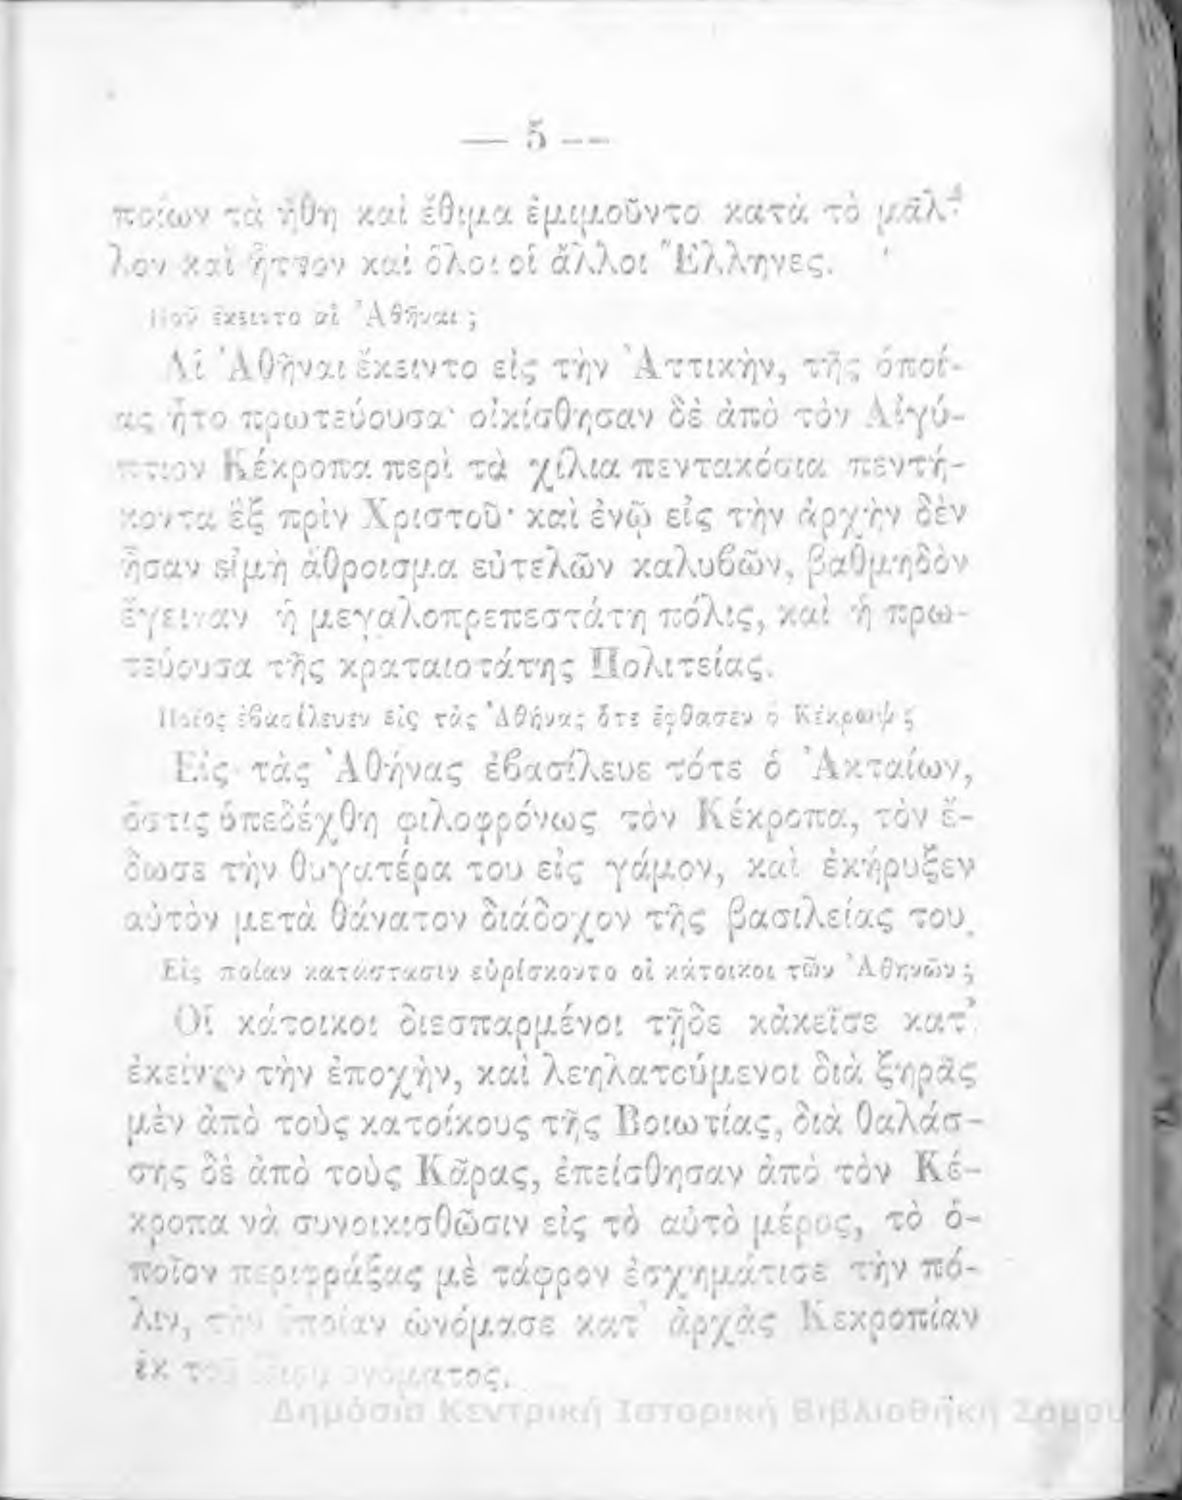 — 5 —
ποίων τὰ ἤθη καὶ ἔθιμα ἐμιμοῦντο κατὰ τὸ μᾶλ-
λον καὶ ἧττον καὶ ὅλοι οἱ ἄλλοι Ἕλληνες.
Ποῦ ἔκειντο αἱ Ἀθῆναι;
Αἱ Ἀθῆναι ἔκειντο εἰς τὴν Ἀττικὴν, τῆς ὁποί-
ας ἦτο πρωτεύουσα· οἰκίσθησαν δὲ ἀπὸ τὸν Αἰγύ-
πτιον Κέκροπα περὶ τὰ χίλια πεντακόσια πεντή-
κοντα ἓξ πρὶν Χριστοῦ· καὶ ἐνῷ εἰς τὴν ἀρχὴν δὲν
ἦσαν εἰμὴ ἄθροισμα εὐτελῶν καλυβῶν, βαθμηδὸν
ἔγειναν ἡ μεγαλοπρεπεστάτη πόλις, καὶ ἡ πρω-
τεύουσα τῆς κραταιοτάτης Πολιτείας.
Ποῖος ἐβασίλευεν εἰς τὰς Ἀθήνας ὅτε ἔφθασεν ὁ Κέκρωψ;
Εἰς τὰς Ἀθήνας ἐβασίλευε τότε ὁ Ἀκταίων,
ὅστις ὑπεδέχθη φιλοφρόνως τὸν Κέκροπα, τὸν ἔ-
δωσε τὴν θυγατέρα του εἰς γάμον, καὶ ἐκήρυξεν
αὐτὸν μετὰ θάνατον διάδοχον τῆς βασιλείας του.
Εἰς ποίαν κατάστασιν εὑρίσκοντο οἱ κάτοικοι τῶν Ἀθηνῶν;
Οἱ κάτοικοι διεσπαρμένοι τῇδε κἀκεῖσε κατ'
ἐκείνην τὴν ἐποχὴν, καὶ λεηλατούμενοι διὰ ξηρᾶς
μὲν ἀπὸ τοὺς κατοίκους τῆς Βοιωτίας, διὰ θαλάσ-
σης δὲ ἀπὸ τοὺς Κᾶρας, ἐπείσθησαν ἀπὸ τὸν Κέ-
κροπα νὰ συνοικισθῶσιν εἰς τὸ αὐτὸ μέρος, τὸ ὁ-
ποῖον περιφράξας μὲ τάφρον ἐσχημάτισε τὴν πό-
λιν, τὴν ὁποίαν ὠνόμασε κατ' ἀρχὰς Κεκροπίαν
ἐκ τοῦ ὀνόματος.
Δημόσια Κεντρική Ιστορική Βιβλιοθήκη Σάμου